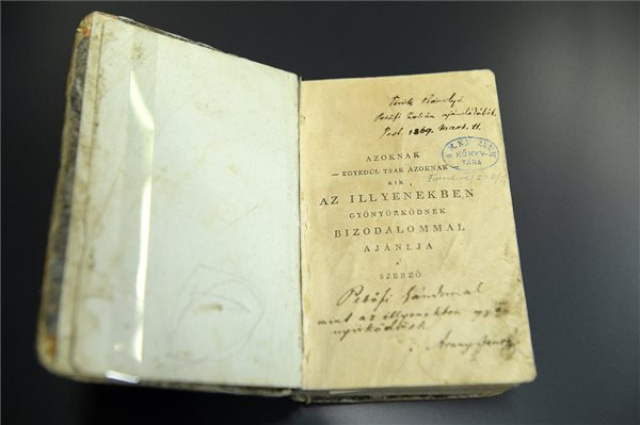 Török Károlyé
Petőfi Zoltán ajándékából.
Pest 1869. Mart. 11.
M. N. MÚZ.
KÖNYV-
TÁRA
AZOKNAK
— EGYEDÜL TSAK AZOKNAK —
KIK
AZ ILLYENEKBEN
GYÖNYÖRKÖDNEK
BIZODALOMMAL
AJÁNLJA
A'
SZERZŐ
Petőfi Sándornak
mint az illyenekben gyö-
nyörködőnek
Arany János